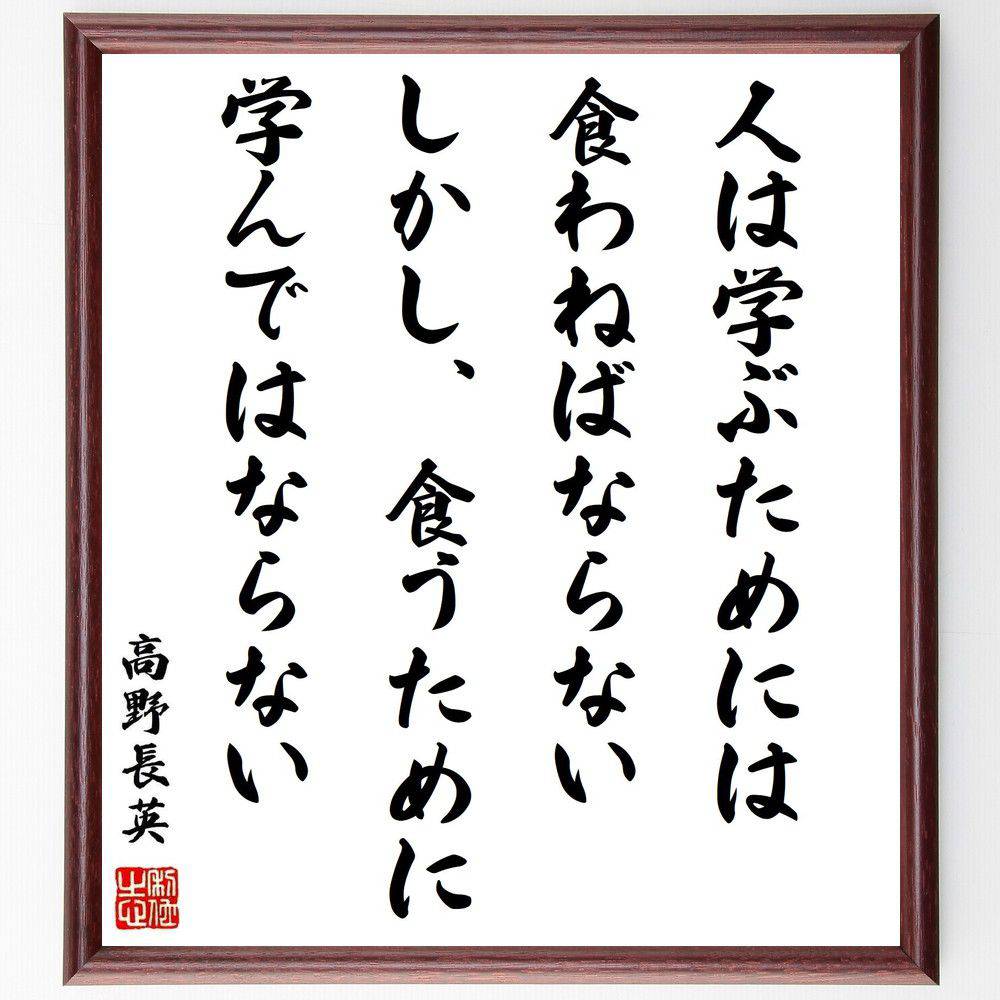 人は学ぶためには
食わねばならない
しかし、食うために
学んではならない
高野長英